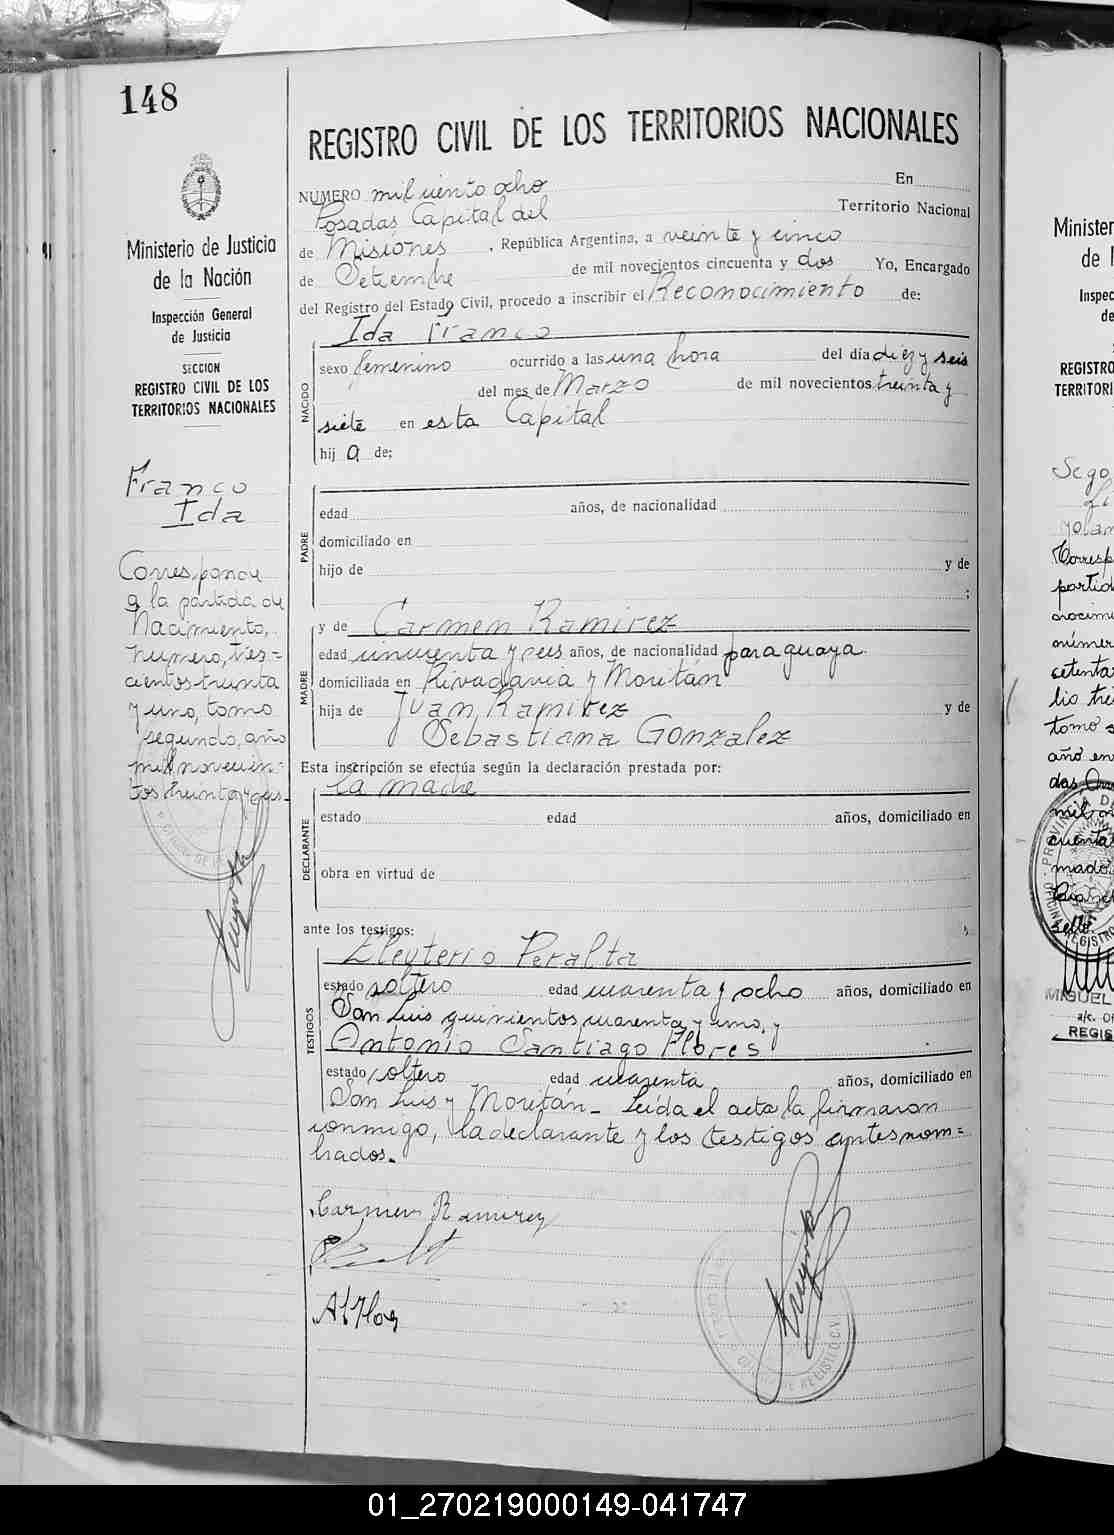 148
Ministerio de Justicia
de la Nación
Inspección General
de Justicia
SECCION
REGISTRO CIVIL DE LOS
TERRITORIOS NACIONALES
Franco
Ida
Corresponde
a la partida de
Nacimiento,
numero, tres=
cientos treinta
y uno, tomo
segundo, año
mil novecien-
tos treinta y seis-
REGISTRO CIVIL DE LOS TERRITORIOS NACIONALES
NUMERO mil ciento ocho En
Posadas Capital del Territorio Nacional
de Misiones, República Argentina, a veinte y cinco
de Setiembre de mil novecientos cincuenta y dos Yo, Encargado
del Registro del Estado Civil, procedo a inscribir el Reconocimiento de:
Ida Franco
NACIDO
sexo femenino ocurrido a las una hora del día diez y seis
del mes de Marzo de mil novecientos treinta y
siete en esta Capital
hij a de;
PADRE
edad años, de nacionalidad
domiciliado en
hijo de y de
;
MADRE
y de Carmen Ramirez
edad cincuenta y seis años, de nacionalidad paraguaya
domiciliada en Rivadavia y Moritán
hija de Juan Ramirez y de
Sebastiana Gonzalez
Esta inscripción se efectúa según la declaración prestada por:
la madre
DECLARANTE
estado edad años, domiciliado en
obra en virtud de
ante los testigos:
Eleyterio Peralta
TESTIGOS
estado soltero edad cuarenta y ocho años, domiciliado en
San Luis quinientos cuarenta y uno, y
Antonio Santiago Flores
estado soltero edad cuarenta años, domiciliado en
San Luis y Moritán_ Leída el acta la firmaron
conmigo, la declarante y los testigos antesnom=
brados.
Carmen Ramirez
Ministe
de l
Inspec
de
REGISTRO
TERRITORI
Corresp
partid
setenta
tomo s
MIGUEL
a/c. Of
REGIS
01_270219000149-041747